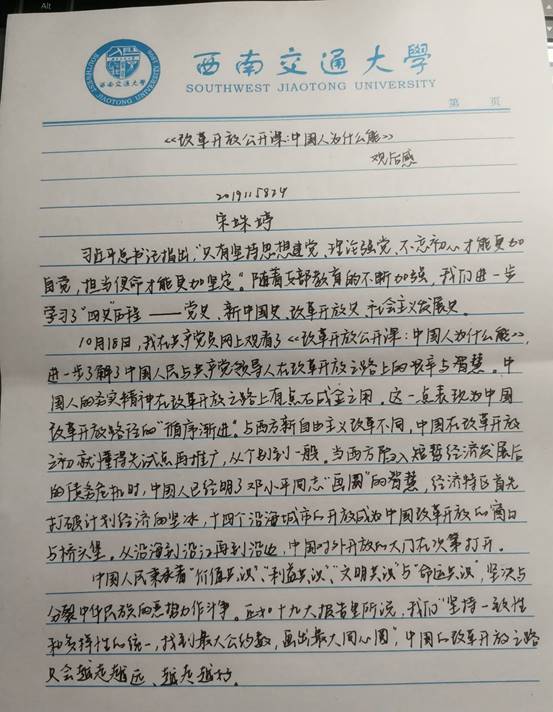 Alt
西南交通大学
SOUTHWEST JIAOTONG UNIVERSITY
西南交通大学
SOUTHWEST JIAOTONG UNIVERSITY
第 页
<<改革开放公开课:中国人为什么能>>
观后感
2019115824
宋珠婷
习近平总书记指出,“只有坚持思想建党、理论强党、不忘初心才能更加
自觉,担当使命才能更加坚定”。随着支部教育的不断加强,我们进一步
学习了“四史”历程——党史、新中国史、改革开放史、社会主义发展史。
10月18日,我在共产党员网上观看了<<改革开放公开课:中国人为什么能>>,
进一步了解了中国人民与共产党领导人在改革开放之路上的艰辛与智慧。中
国人的务实精神在改革开放之路上有点石成金之用。这一点表现为中国
改革开放路径的“循序渐进”。与西方新自由主义改革不同,中国在改革开放
之初就懂得先试点再推广,从个别到一般。当西方陷入短暂经济发展后
的债务危机时,中国人已经明了邓小平同志“画圈”的智慧,经济特区首先
打破计划经济的坚冰,十四个沿海城市的开放成为中国改革开放的窗口
与桥头堡。从沿海到沿江再到沿边,中国对外开放的大门在次第打开。
中国人民秉承着“价值共识”、“利益共识”、“文明共识”与“命运共识”,坚决与
分裂中华民族的恶势力作斗争。正如十九大报告里所说,我们“坚持一致性
和多样性的统一,找到最大公约数,画出最大同心圆”,中国的改革开放之路
只会越走越远、越走越好。